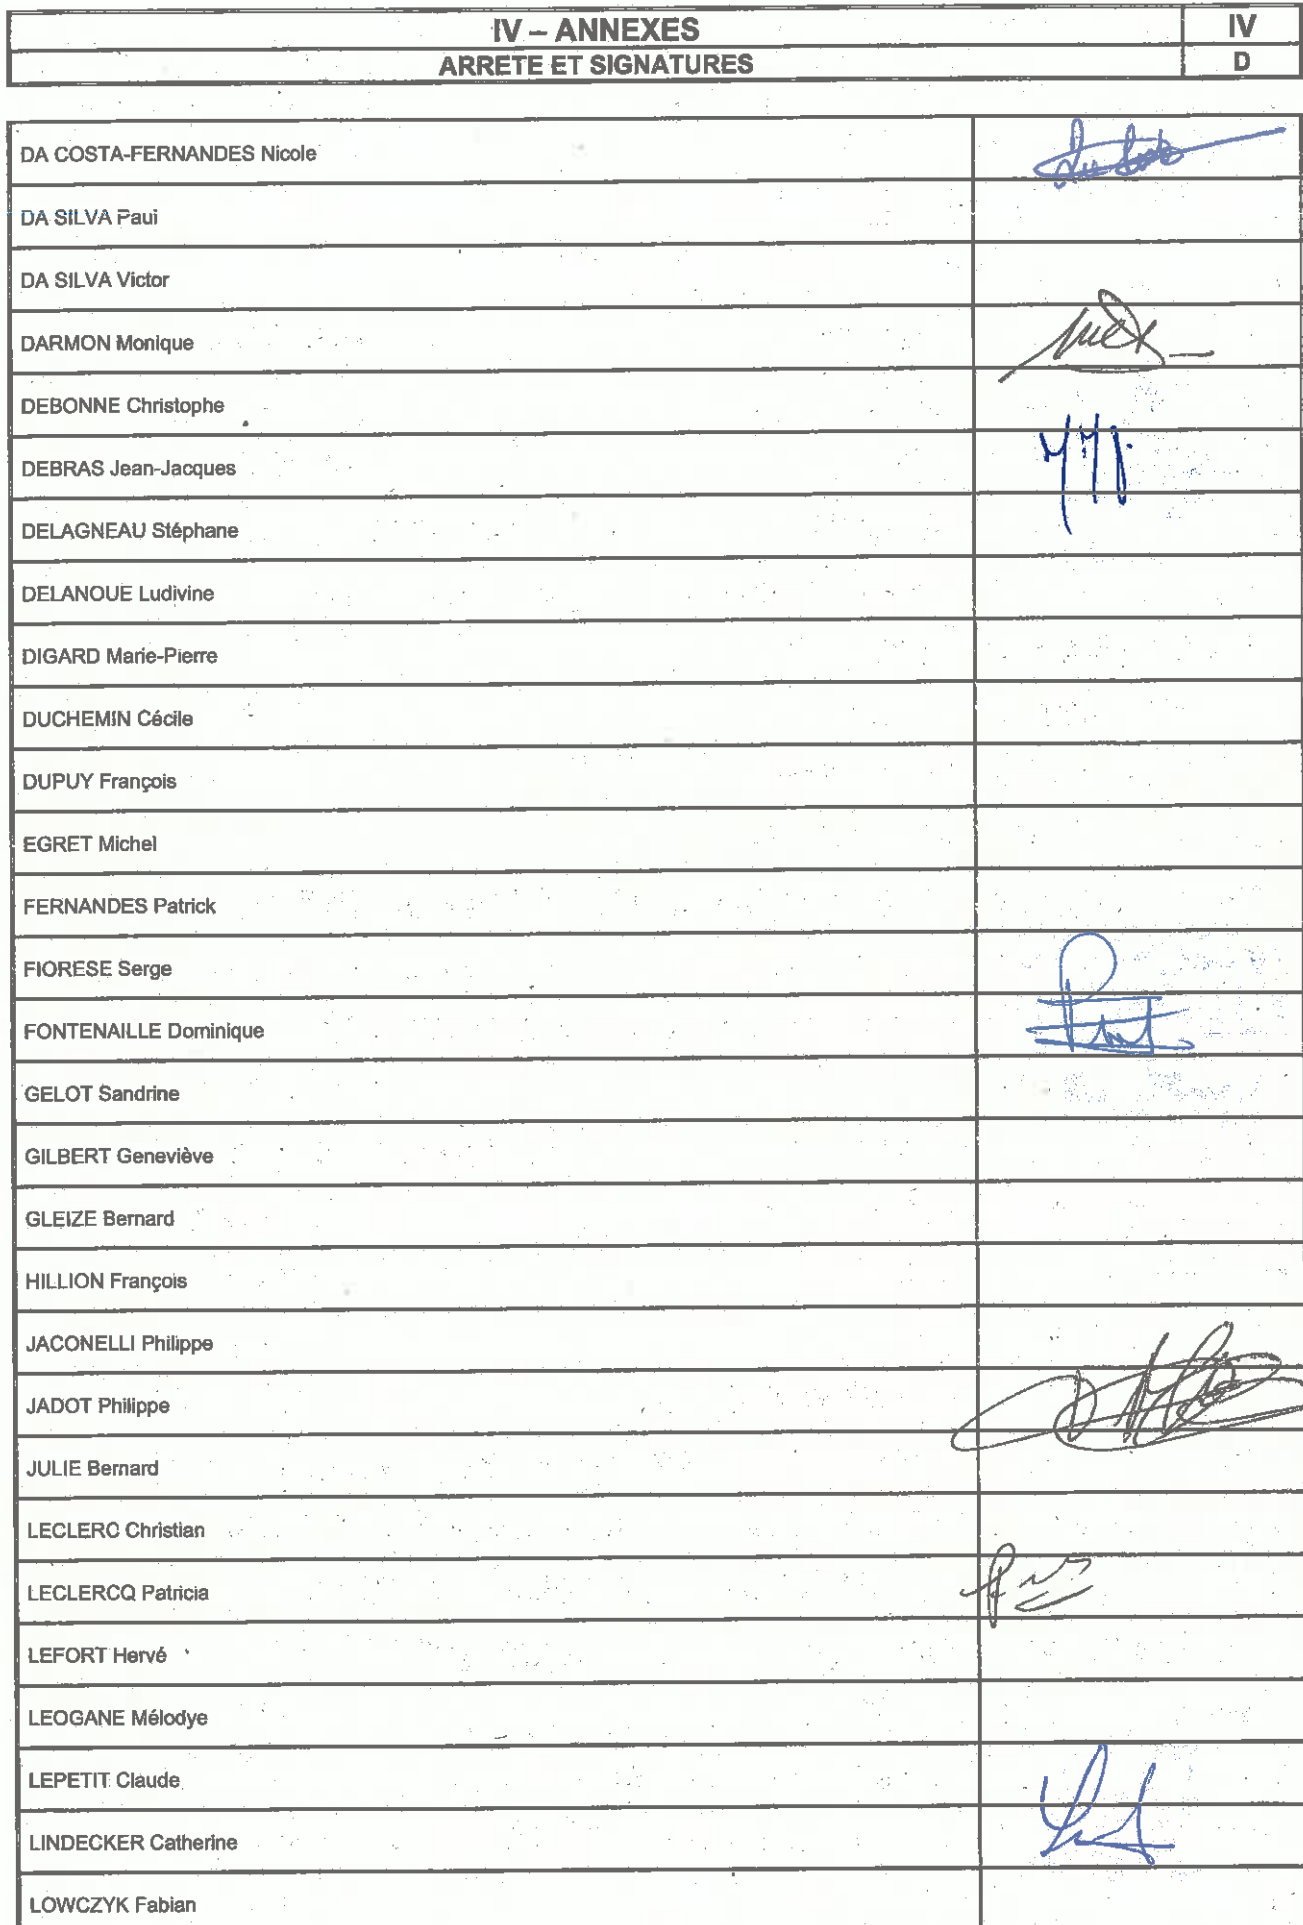 IV – ANNEXES
IV
ARRETE ET SIGNATURES
D
DA COSTA-FERNANDES Nicole
DA SILVA Paul
DA SILVA Victor
DARMON Monique
DEBONNE Christophe
DEBRAS Jean-Jacques
DELAGNEAU Stéphane
DELANOUE Ludivine
DIGARD Marie-Pierre
DUCHEMIN Cécile
DUPUY François
EGRET Michel
FERNANDES Patrick
FIORESE Serge
FONTENAILLE Dominique
GELOT Sandrine
GILBERT Geneviève
GLEIZE Bernard
HILLION François
JACONELLI Philippe
JADOT Philippe
JULIE Bernard
LECLERC Christian
LECLERCQ Patricia
LEFORT Hervé
LEOGANE Mélodye
LEPETIT Claude
LINDECKER Catherine
LOWCZYK Fabian